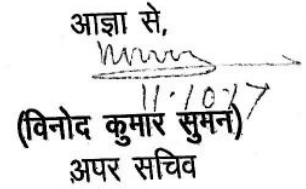 आज्ञा से,
11.10.17
(विनोद कुमार सुमन)
अपर सचिव